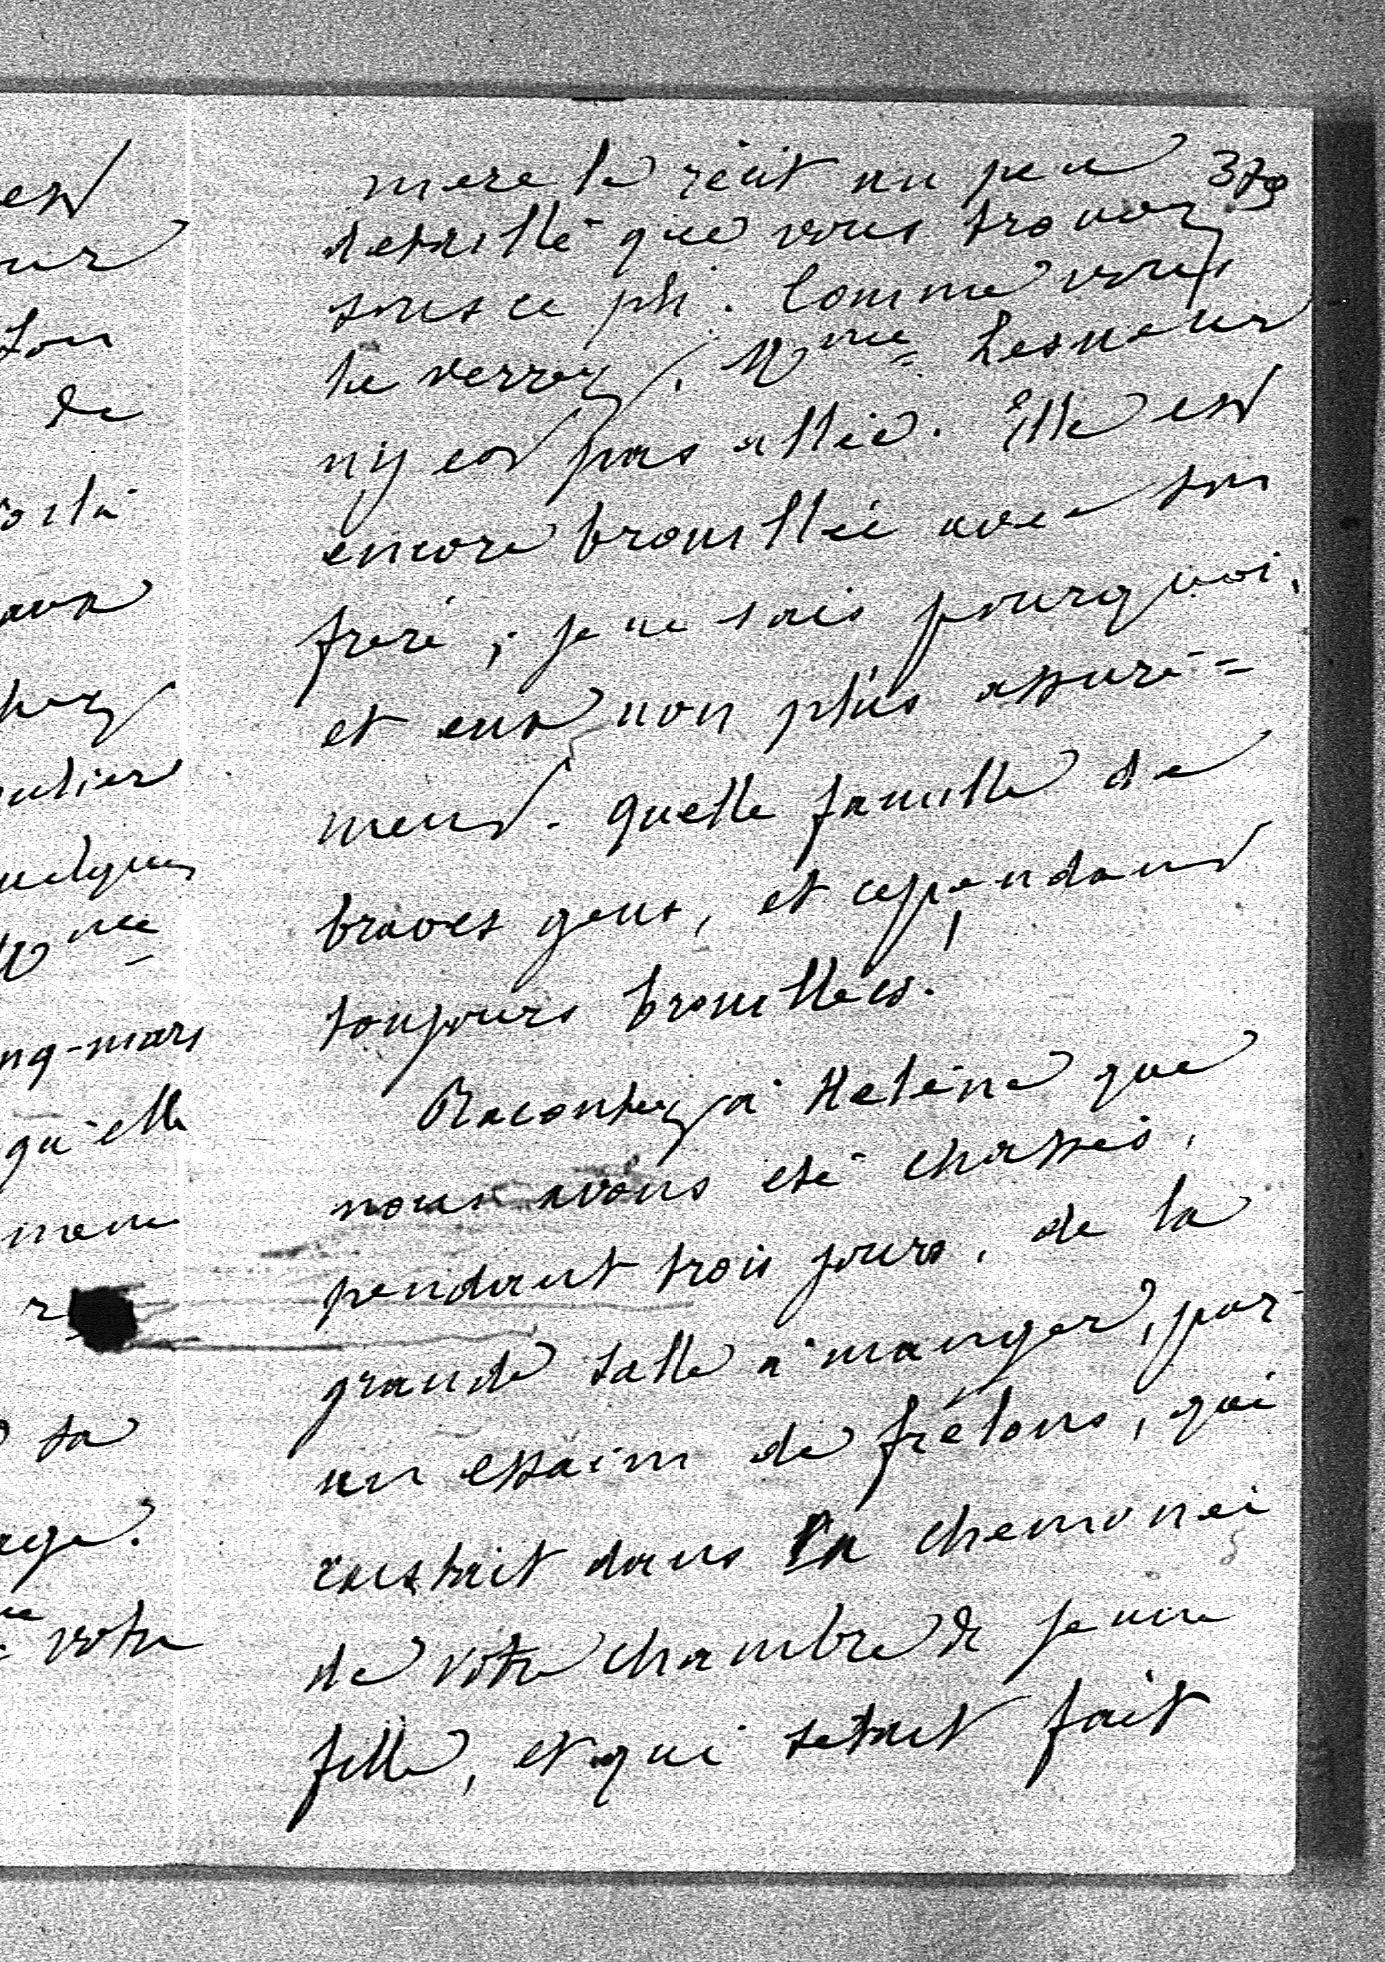 est
mere le récit un peu 379
detaillé que vous trouvez
sous ce pli. Comme vous
le verrez, Mme Lesueur
n'y est pas allée. Elle est
encore brouillée avec son
frere, je ne sais pourquoi,
et eux non plus assuré=
ment. Quelle famille de
braves gens, et cependant
toujours brouillés.
Racontez à Helène que
nous avons été chassés,
pendant trois jours, de la
grande salle à manger, par
un essaim de frélons, qui
existait dans la cheminée
de votre chambre de jeune
fille, et qui setait fait
de
voilà
quelques
Mme
qu'elle
sa
votre